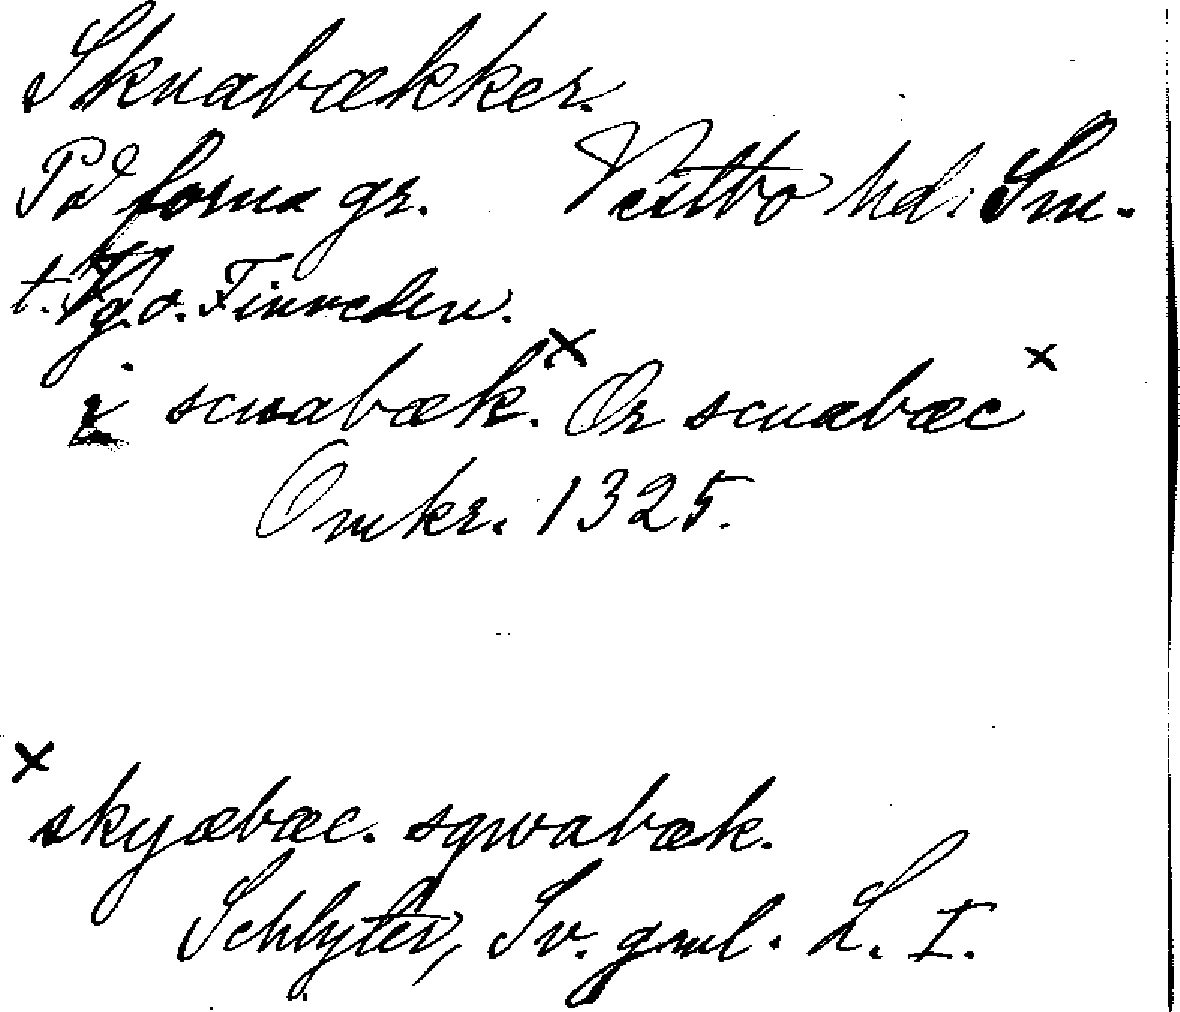 Skuabækker.
På forna gr. Västbo hd. Sm.
t. Vg. o. Finveden.
i scuabæk.× Or scuabæc×
Omkr. 1325.
× skyæbæc. sqwabæk.
Schlyter, Sv. gml. L. I.